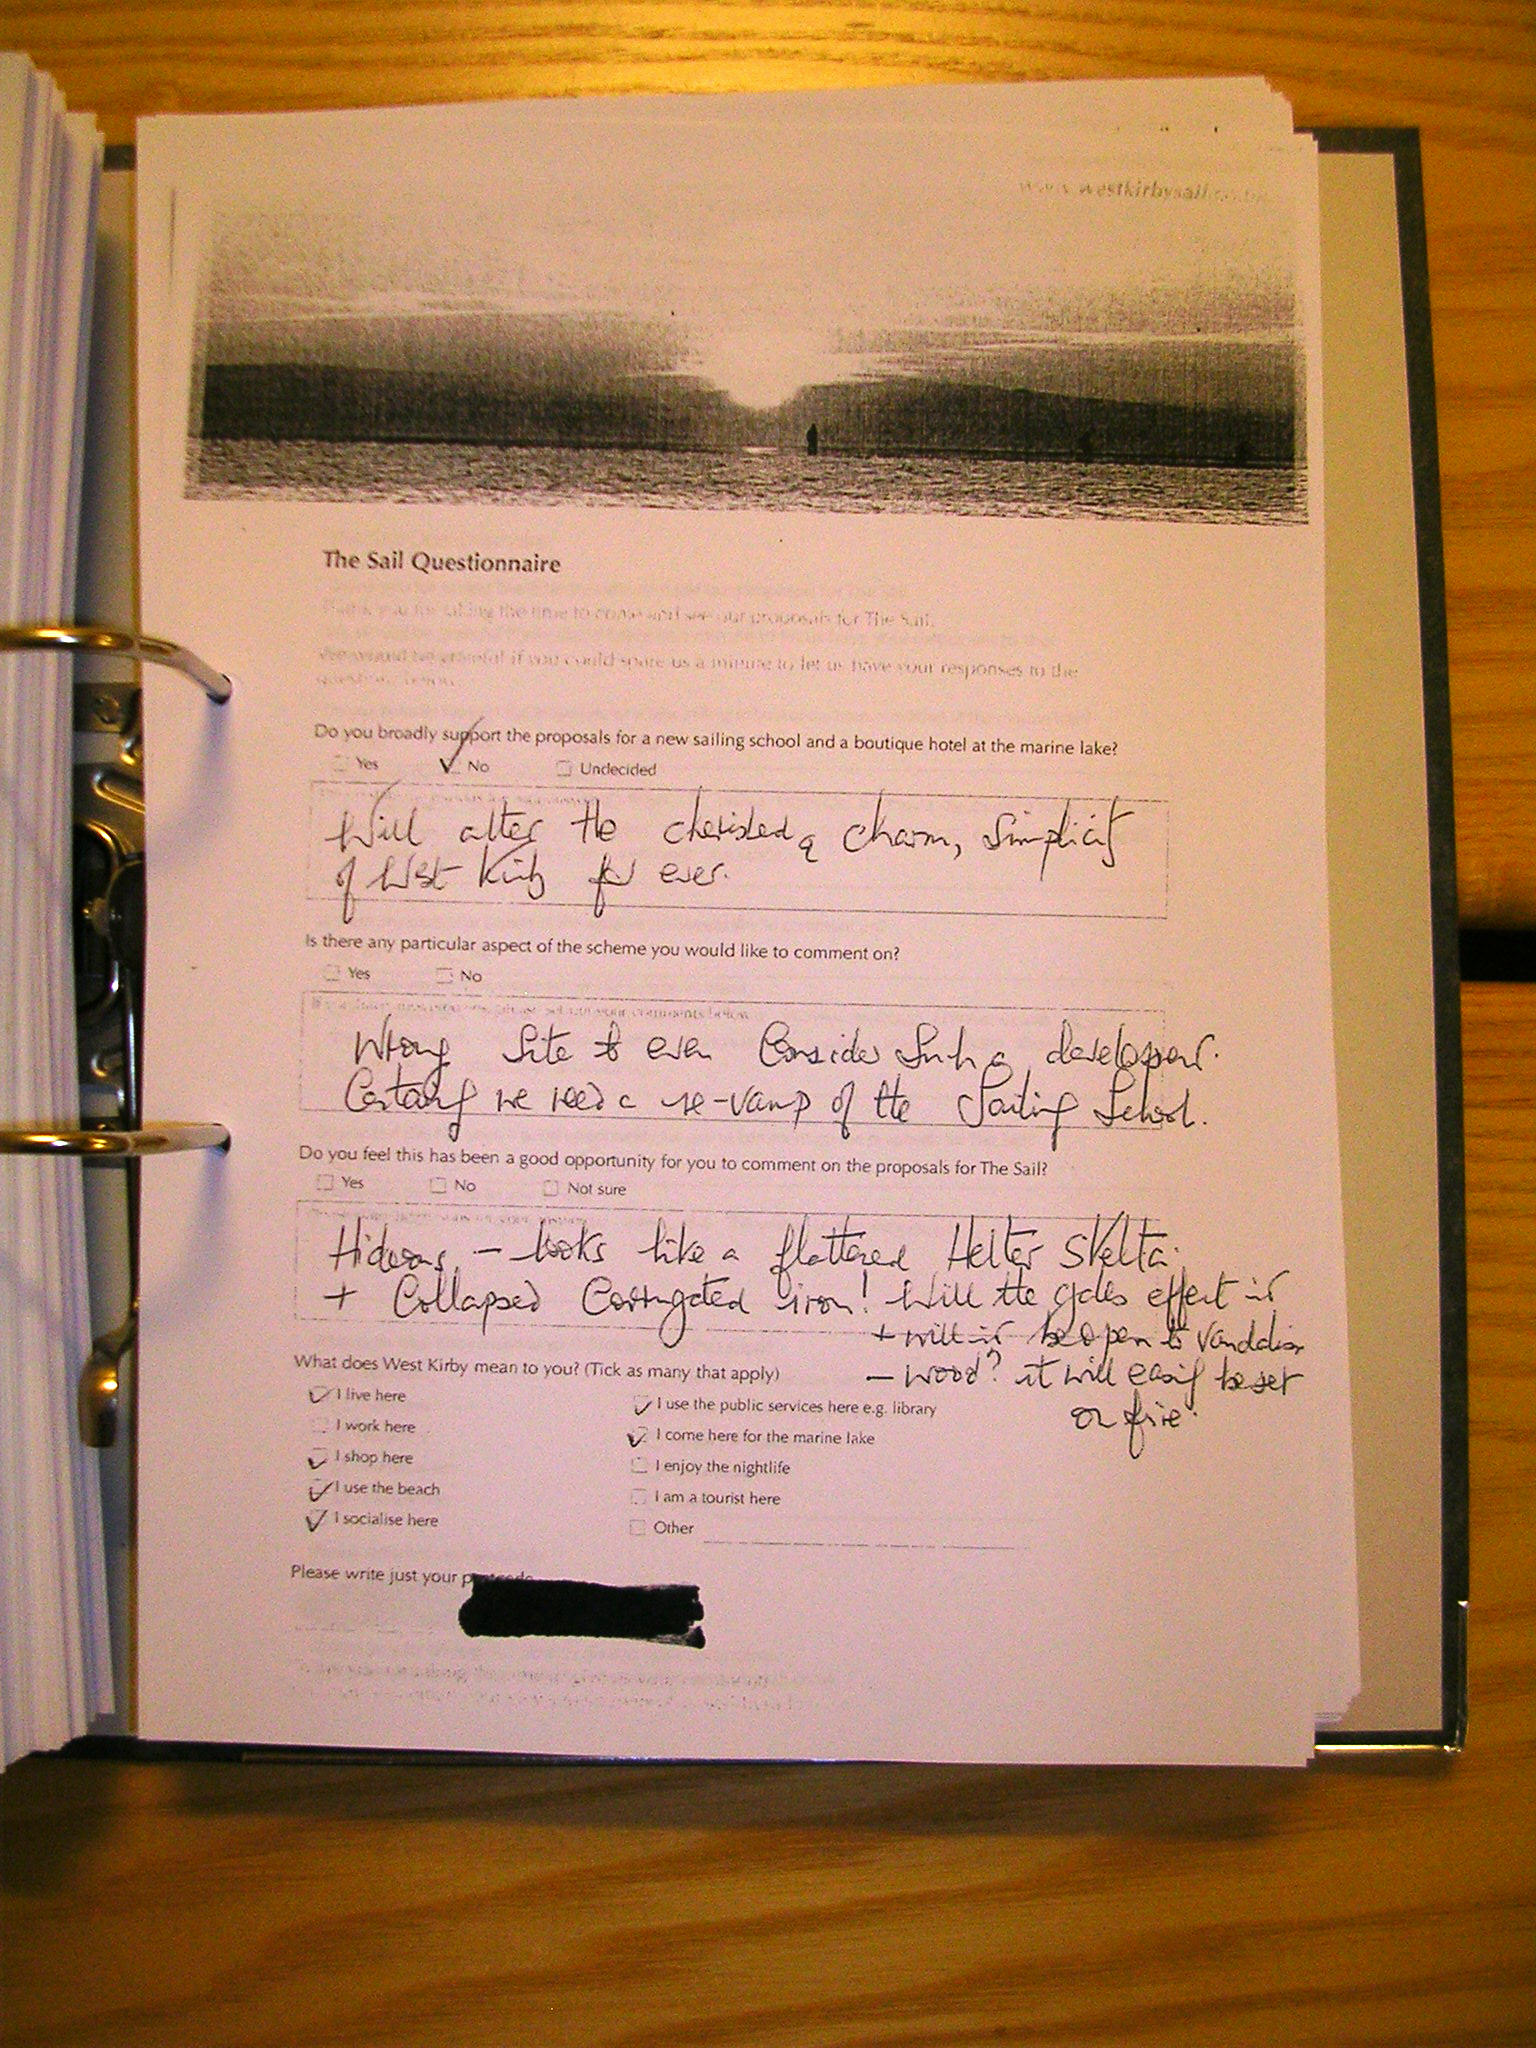 www.westkirbysail.co.uk
The Sail Questionnaire
Thank you for taking the time to come and see our proposals for The Sail.
We would be grateful if you could spare us a minute to let us have your responses to the
questions below.
Do you broadly support the proposals for a new sailing school and a boutique hotel at the marine lake?
Yes No Undecided
Will alter the cherished charm, Simplicity
of West Kirby for ever.
Is there any particular aspect of the scheme you would like to comment on?
Yes No
Wrong Site to even Consider Such a
Certainly we need a re-vamp of the Sailing School.
Do you feel this has been a good opportunity for you to comment on the proposals for The Sail?
Yes No Not sure
Hideous - looks like a flattened Helter Skelta.
+ Collapsed Corrugated iron! Will the gales effect it
+ will it be open to
- wood? it will easily be set
on fire.
What does West Kirby mean to you? (Tick as many that apply)
I live here I use the public services here e.g. library
I work here I come here for the marine lake
I shop here I enjoy the nightlife
I use the beach I am a tourist here
I socialise here Other
Please write just your postcode